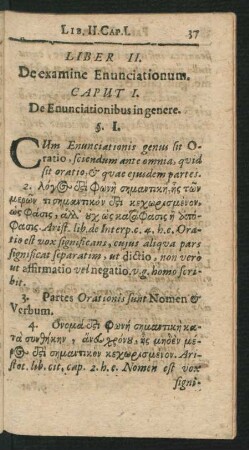 LIB. II. CAP. I. 37
LIBER II.
De examine Enunciationum.
CAPUT I.
De Enunciationibus in genere.
§. I.
CUm Enunciationis genus sit O-
ratio, sciendum ante omnia, quid
sit oratio, & quae ejusdem partes.
2. λόγος ἐστὶ φωνὴ σημαντικὴ, ἧς τῶν
μερῶν τι σημαντικόν ἐστι κεχωρισμένον,
ὡς φάσις, ἀλλ' οὐχ ὡς κατάφασις ἢ ἀπό-
φασις. Arist. lib. de Interp. c. 4. h.e. Ora-
tio est vox significans, cujus aliqua pars
significat separatim, ut dictio, non verò
ut affirmatio vel negatio, v.g. homo scri-
bit.
3. Partes Orationis sunt Nomen &
Verbum.
4. Ονομα ἐστὶ φωνὴ σημαντικὴ κα-
τὰ συνθήκην, ἄνευ χρόνου, ἧς μηδὲν μέ-
ρος ἐστὶ σημαντικὸν κεχωρισμένον. Ari-
stot. lib. cit. cap. 2. h.e. Nomen est vox
signi-